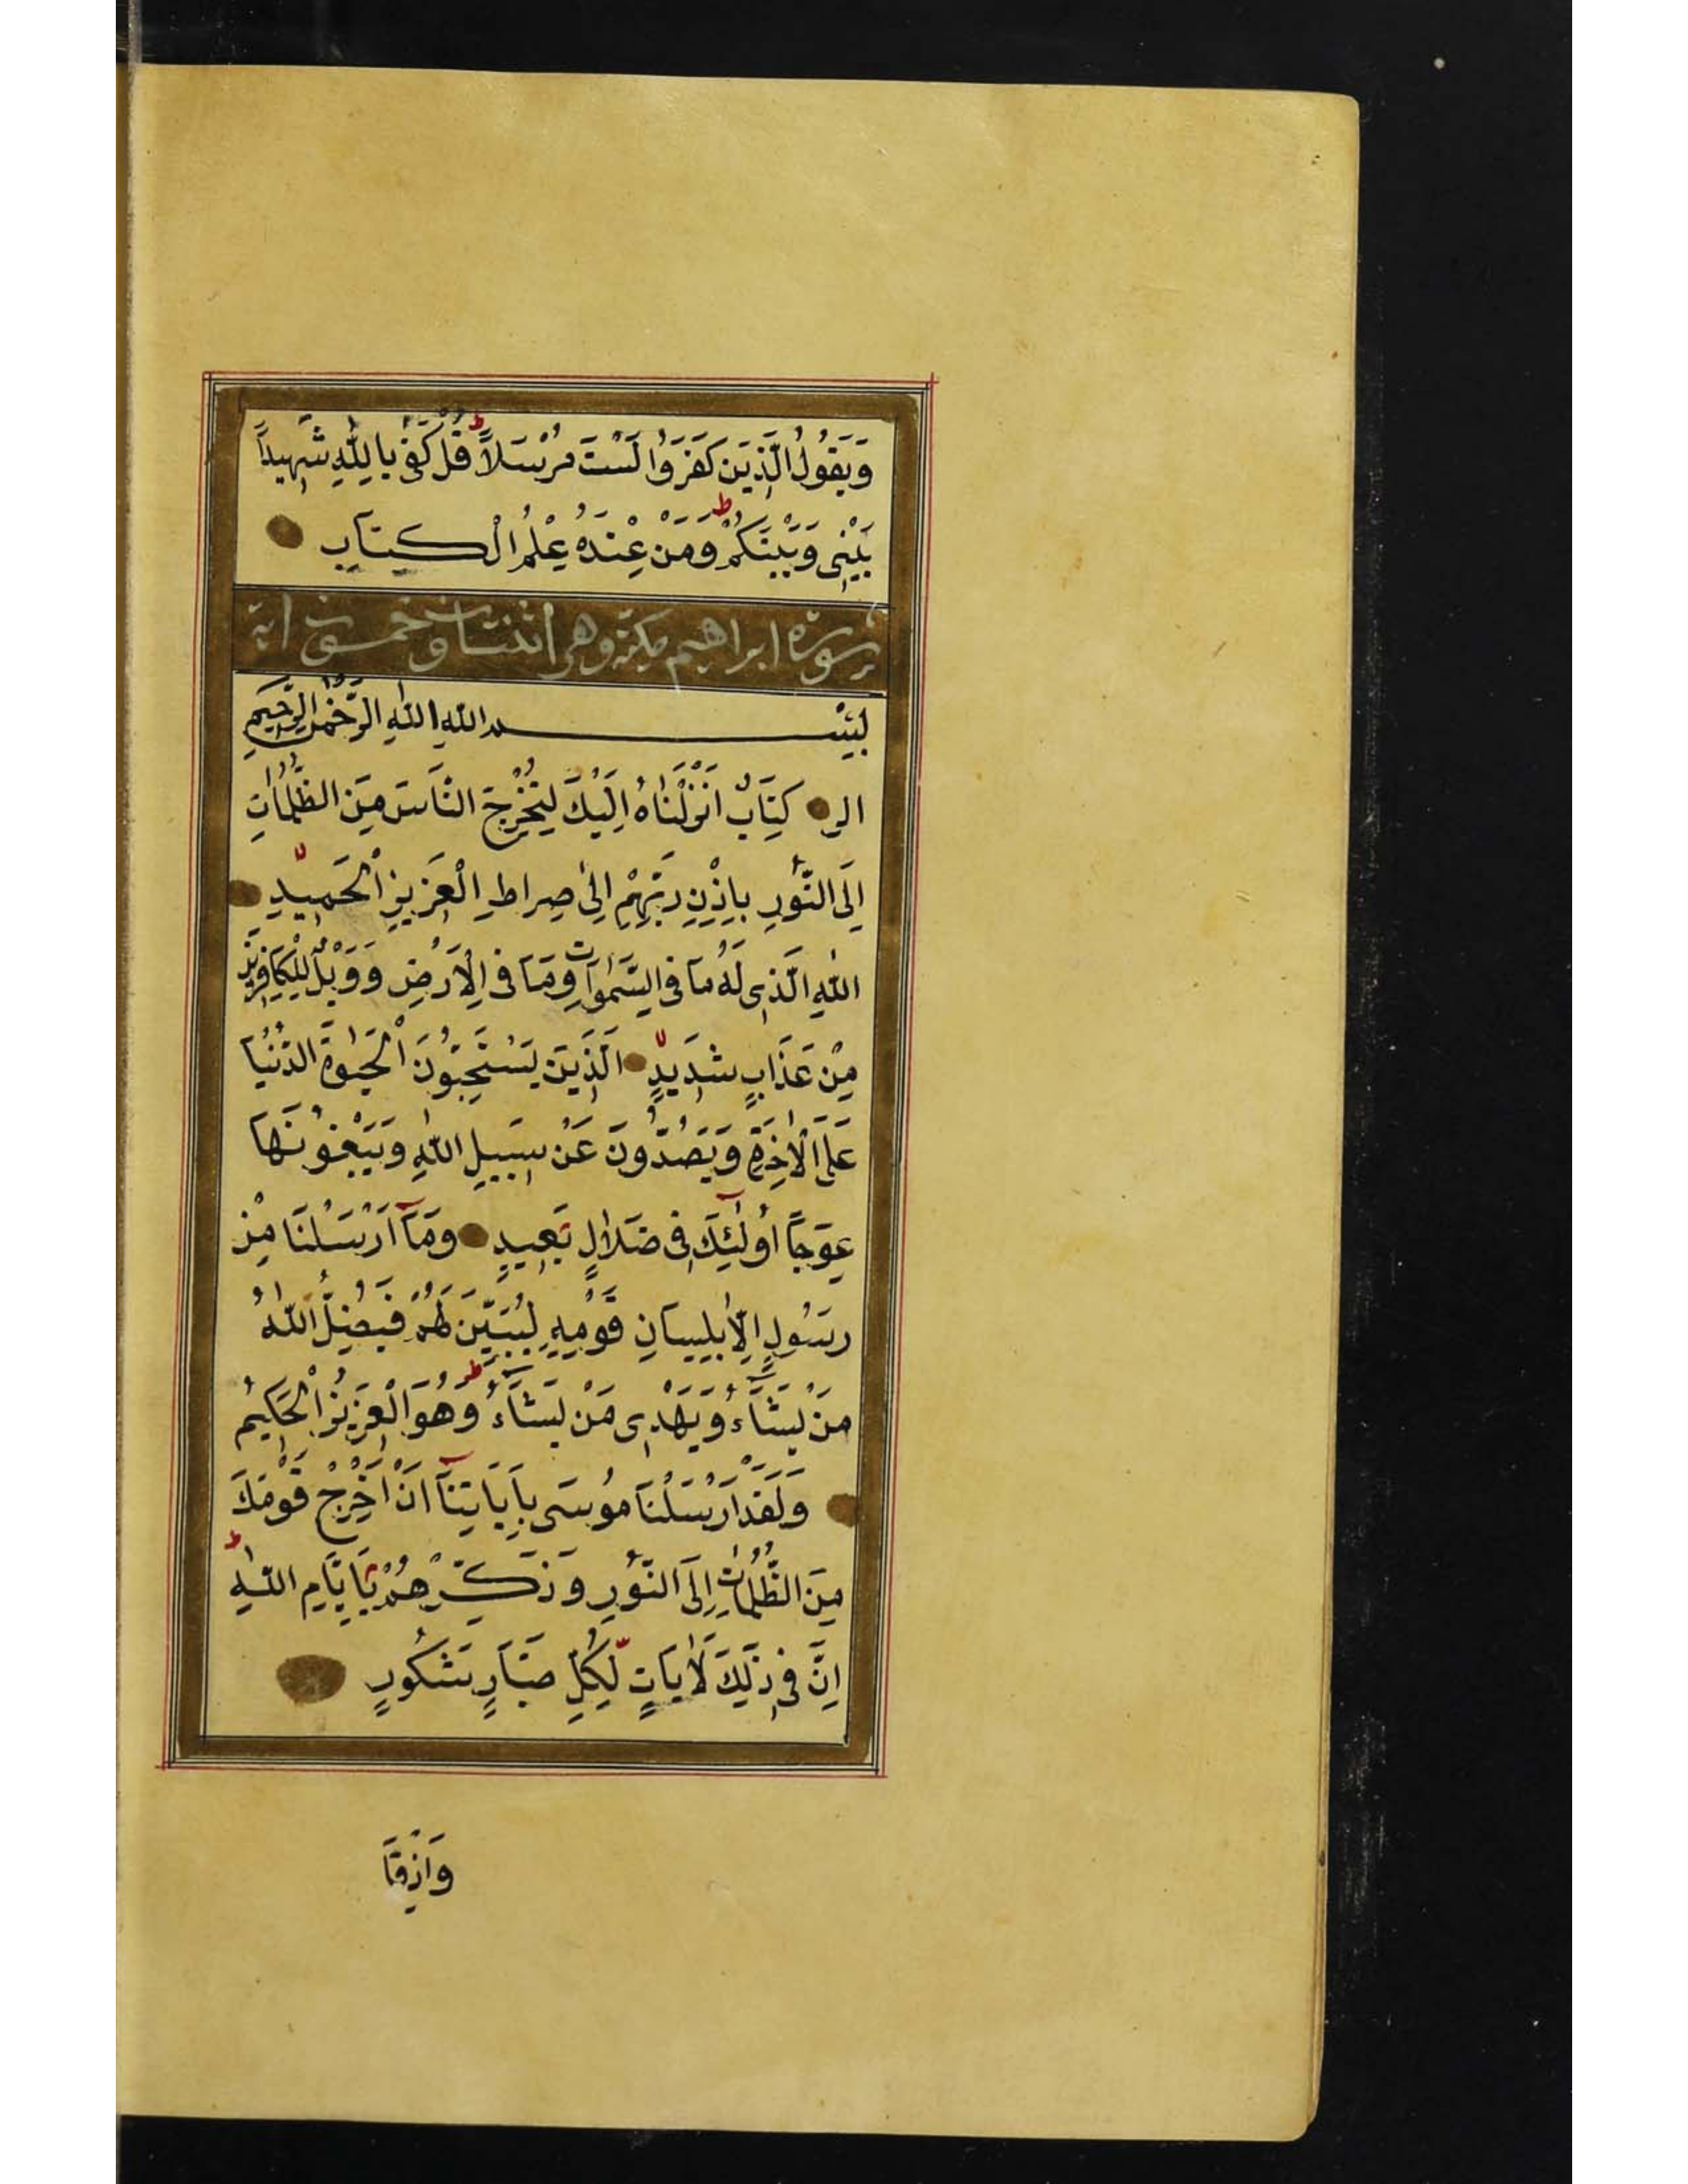 وَيَقُولُ الَّذِينَ كَفَرُوا لَسْتَ مُرْسَلًا ط قُلْ كَفٰى بِاللّٰهِ شَهِيدًا
بَيْنِى وَبَيْنَكُمْ ط وَمَنْ عِنْدَهُ عِلْمُ الْكِتَابِ
سورة ابراهيم مكية وهى اثنتان وخمسون اية
بِسْمِ اللهِ اللّٰهِ الرَّحْمٰنِ الرَّحِيمِ
الر كِتَابٌ اَنْزَلْنَاهُ اِلَيْكَ لِتُخْرِجَ النَّاسَ مِنَ الظُّلُمَاتِ
اِلَى النُّورِ بِاِذْنِ رَبِّهِمْ اِلٰى صِرَاطِ الْعَزِيزِ الْحَمِيدِ لا
اللّٰهِ الَّذِى لَهُ مَا فِى السَّمٰوَاتِ وَمَا فِى الْاَرْضِ وَوَيْلٌ لِلْكَافِرِينَ
مِنْ عَذَابٍ شَدِيدٍ لا الَّذِينَ يَسْتَحِبُّونَ الْحَيٰوةَ الدُّنْيَا
عَلَى الْاٰخِرَةِ وَيَصُدُّونَ عَنْ سَبِيلِ اللّٰهِ وَيَبْغُونَهَا
عِوَجًا اُولٰئِكَ فِى ضَلَالٍ بَعِيدٍ وَمَا اَرْسَلْنَا مِنْ
رَسُولٍ اِلَّا بِلِسَانِ قَوْمِهِ لِيُبَيِّنَ لَهُمْ فَيُضِلُّ اللّٰهُ
مَنْ يَشَاءُ وَيَهْدِى مَنْ يَشَاءُ ط وَهُوَ الْعَزِيزُ الْحَكِيمُ
وَلَقَدْ اَرْسَلْنَا مُوسَى بِاٰيَاتِنَا اَنْ اَخْرِجْ قَوْمَكَ
مِنَ الظُّلُمَاتِ اِلَى النُّورِ وَذَكِّرْهُمْ بِاَيَّامِ اللّٰهِ ط
اِنَّ فِى ذٰلِكَ لَاٰيَاتٍ لِكُلِّ صَبَّارٍ شَكُورٍ